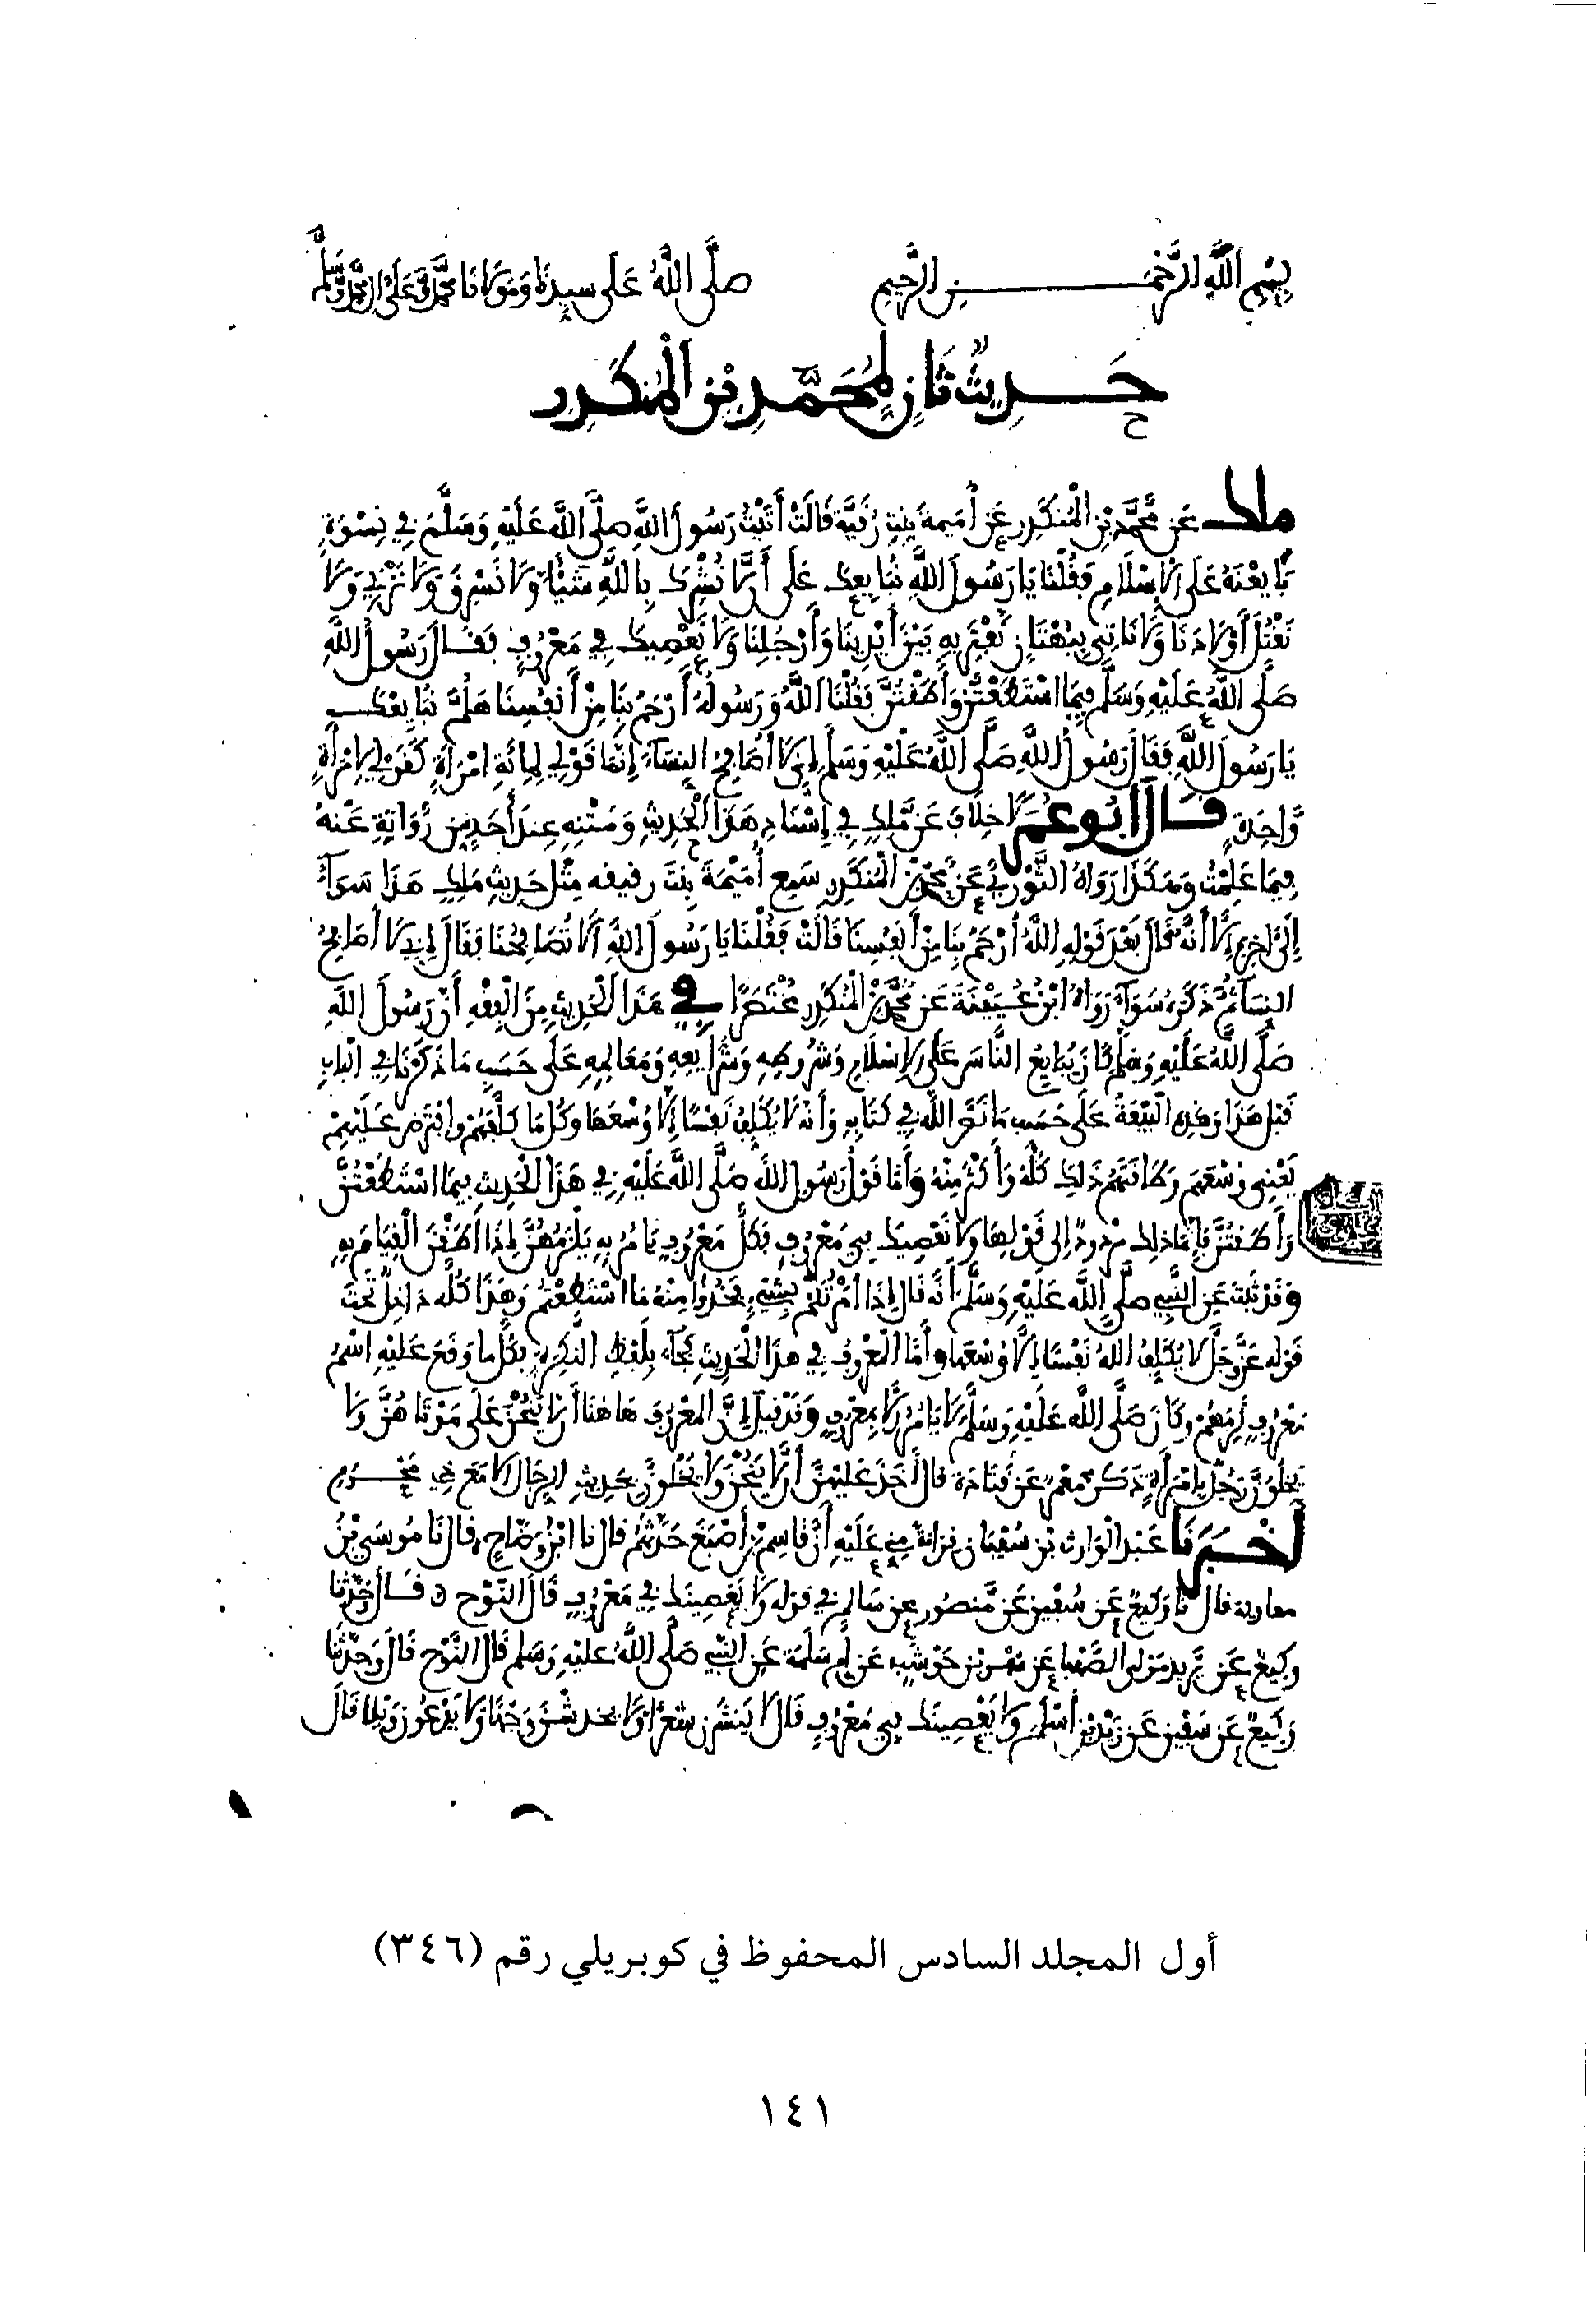 بِسْمِ اللَّهِ الرَّحْمَـٰنِ الرَّحِيمِ صَلَّى اللَّهُ عَلَى سيدنا ومَوْلَانَا مُحَمَّدٍ وَعَلَى آل محمد وَسَلَّمَ
حَدِيثٌ ثَانٍ لِمُحَمَّدِ بْنِ الْمُنْكَدِرِ
ملك عَن مُحَمَّدِ بْنِ الْمُنْكَدِرِ عَن أُمَيمَةَ بِنْتِ رُقَيَّةَ قَالَتْ أَتَيْتُ رَسُولَ اللَّهِ صَلَّى اللَّهُ عَلَيْهِ وَسَلَّمَ فِي نِسْوَةٍ
بَايَعْنَهُ عَلَى الْإِسْلَامِ فَقُلْنَا يَا رَسُولَ اللَّهِ نُبَايِعُكَ عَلَى أَلَّا نُشْرِكَ بِاللَّهِ شَيْئًا وَلَا نَسْرِقَ وَلَا نَزْنِيَ وَلَا
نَقْتُلَ أَوْلَادَنَا وَلَا نَاتِيَ بِبُهْتَانٍ نَفْتَرِيهِ بَيْنَ أَيْدِينَا وَأَرْجُلِنَا وَلَا نَعْصِيَكَ فِي مَعْرُوفٍ فَقَالَ رَسُولُ اللَّهِ
صَلَّى اللَّهُ عَلَيْهِ وَسَلَّمَ فِيمَا اسْتَطَعْتُنَّ وَأَطَقْتُنَّ فَقُلْنَا اللَّهُ وَرَسُولُهُ أَرْحَمُ بِنَا مِنْ أَنفُسِنَا هَلُمَّ نُبَايِعْكَ
يَا رَسُولَ اللَّهِ فَقَالَ رَسُولُ اللَّهِ صَلَّى اللَّهُ عَلَيْهِ وَسَلَّمَ إِنِّي لَا أُصَافِحُ النِّسَاءَ إِنَّمَا قَوْلِي لِمِائَةِ امْرَأَةٍ كَقَوْلِي لِامْرَأَةٍ
وَاحِدَةٍ قَالَ أَبُو عُمَرَ لَا خِلَافَ عَن مَّلِكٍ فِي إِسْنَادِ هَذَا الْحَدِيثِ وَمَتْنِهِ عِندَ أَحَدٍ مِن رُوَاتِهِ عَنْهُ
فِيمَا عَلِمْتُ وَهَكَذَا رَوَاهُ الثَّوْرِيُّ عَن مُحَمَّدِ بْنِ الْمُنْكَدِرِ سَمِعَ أُمَيْمَةَ بِنْتَ رقيقه مِثْلَ حَدِيثِ مَلِكٍ هَذَا سَوَاءً
إِلَى آخِرِهِ إِلَّا أَنَّهُ قَالَ بَعْدَ قَوْلِهِ اللَّهُ أَرْحَمُ بِنَا مِنْ أَنفُسِنَا قَالَتْ فَقُلْنَا يَا رَسُولَ اللَّهِ أَلَا تُصَافِحُنَا فَقَالَ إِنِّي لَا أُصَافِحُ
النِّسَاءَ ثُمَّ ذَكَرَهُ سَوَاءً رَوَاهُ ابْنُ عُيَيْنَةَ عَن مُحَمَّدِ بْنِ الْمُنْكَدِرِ مُخْتَصَرًا فِي هَذَا الْحَدِيثِ مِنَ الْفِقْهِ أَنَّ رَسُولَ اللَّهِ
صَلَّى اللَّهُ عَلَيْهِ وَسَلَّمَ كَانَ يُبَايِعُ النَّاسَ عَلَى الْإِسْلَامِ وَشُرُوطِهِ وَشَرَائِعِهِ وَمَعَالِمِهِ عَلَى حَسَبِ مَا ذَكَرْنَا فِي الْبَابِ
قَبْلَ هَذَا وَهَذِهِ الْبَيْعَةُ عَلَى حَسَبِ مَا نَصَّ اللَّهُ فِي كِتَابِهِ وَأَنَّهُ لَا يُكَلِّفُ نَفْسًا إِلَّا وُسْعَهَا وَكُلُّ مَا كَلَّفَهُمْ وافْتَرَضَ عَلَيْهِمْ
يَعْنِي وُسْعَهُمْ وَطَاقَتَهُمْ ذَلِكَ كُلُّهُ وَأَكْثَرَ مِنْهُ وَأَمَّا قَوْلُ رَسُولِ اللَّهِ صَلَّى اللَّهُ عَلَيْهِ فِي هَذَا الْحَدِيثِ فِيمَا اسْتَطَعْتُنَّ
وَأَطَقْتُنَّ فَإِنَّمَا ذَلِكَ مَرْدُودٌ إِلَى قَوْلِهَا وَلَا نَعْصِيَكَ فِي مَعْرُوفٍ فَكُلُّ مَعْرُوفٍ يَامُرُ بِهِ يَلْزَمُهُنَّ إِذَا أَطَقْنَ الْقِيَامَ بِهِ
وَقَدْ ثَبَتَ عَنِ النَّبِيِّ صَلَّى اللَّهُ عَلَيْهِ وَسَلَّمَ أَنَّهُ قَالَ إِذَا أَمَرْتُكُمْ بِشَيْءٍ فَخُذُوا مِنْهُ مَا اسْتَطَعْتُمْ وَهَذَا كُلُّهُ دَاخِلٌ تَحْتَ
قَوْلِهِ عَزَّ وَجَلَّ لَا يُكَلِّفُ اللَّهُ نَفْسًا إِلَّا وُسْعَهَا وأَمَّا الْمَعْرُوفُ فِي هَذَا الْحَدِيثِ فَجَاءَ بِلَفْظِ النَّكِرَةِ فكُلُّ مَا وَقَعَ عَلَيْهِ اسْمُ
مَعْرُوفٍ لَزِمَهُنَّ وكَانَ صَلَّى اللَّهُ عَلَيْهِ وَسَلَّمَ لَا يَامُرُ إِلَّا بِمَعْرُوفٍ وَقَدْ قِيلَ إِنَّ الْمَعْرُوفَ هَاهُنَا أَلَّا يَنُحْنَ عَلَى مَوْتَاهُنَّ وَلَا
يَخْلُوَنَّ رَجُلٌ بِامْرَأَةٍ ذَكَرَ مَعْمَرٌ عَن قَتَادَةَ قَالَ أَخَذَ عَلَيْهِنَّ أَلَّا يَنُحْنَ وَلَا يَخْلُوَنَّ بِحَدِيثِ الرِّجَالِ إِلَّا مَعَ ذِي مَحْرَمٍ
أَخْبَرَنَا عَبْدُ الْوَارِثِ بْنُ سُفْيَانَ قِرَاءَةً مِنِّي عَلَيْهِ أَنَّ قَاسِمَ بْنَ أَصْبَغَ حَدَّثَهُمْ قَالَ نا ابْنُ وَضَّاحٍ قَالَ نَا مُوسَى بْنُ
معاوية قَالَ نا وَكِيعٌ عَن سُفْيَنَ عَن مَّنصُورٍ عَن سَالِمٍ فِي قَوْلِهِ وَلَا يَعْصِينَكَ فِي مَعْرُوفٍ قَالَ النَّوْحُ قَالَ وَحَدَّثَنَا
وَكِيعٌ عَن يَزِيدَ مَوْلَى الصَّهْبَا عَن شَهْرِ بْنِ حَوْشَبٍ عَن أُمِّ سَلَمَةَ عَنِ النَّبِيِّ صَلَّى اللَّهُ عَلَيْهِ وَسَلَّمَ قَالَ النَّوْحُ قَالَ وَحَدَّثَنَا
وَكِيعٌ عَن سُفْيَنَ عَن زَيْدِ بْنِ أَسْلَمَ وَلَا يَعْصِينَكَ فِي مَعْرُوفٍ قَالَ لَا يَنشُرْنَ شَعَرًا وَلَا يخدشْنَ وَجْهًا وَلَا يَدْعُونَ وَيْلًا قَالَ
أول المجلد السادس المحفوظ في كوبريلي رقم (٣٤٦)
١٤١